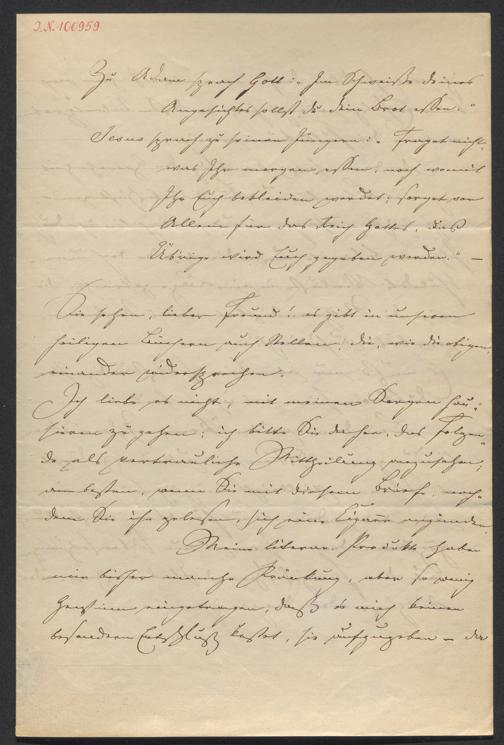 J.N. 100959
Zu Adam sprach Gott: „Im Schweiße deines
Angesichtes sollst du dein Brot essen."
Jesus sprach zu seinen Jüngern: „Fraget nicht,
was Ihr morgen essen, noch womit
Ihr Euch bekleiden werdet; sorget vor
Allem für das Reich Gottes, das
Übrige wird Euch gegeben werden." —
Sie sehen, lieber Freund! es gibt in unseren
heiligen Büchern auch Stellen, die, wie die obigen,
einander widersprechen.
Ich liebe es nicht, mit meinen Sorgen hau-
sieren zu gehen; ich bitte Sie daher, das Folgen-
de als vertrauliche Mittheilung anzusehen,
am besten, wenn Sie mit diesem Briefe, nach-
dem Sie ihn gelesen, sich eine Cigarre anzünden.
Meine literar. Produkte haben
mir bisher manche Kränkung, aber so wenig
Gewinn eingetragen, daß es mich keinen
besonderen Entschluß kostet, sie aufzugeben — da